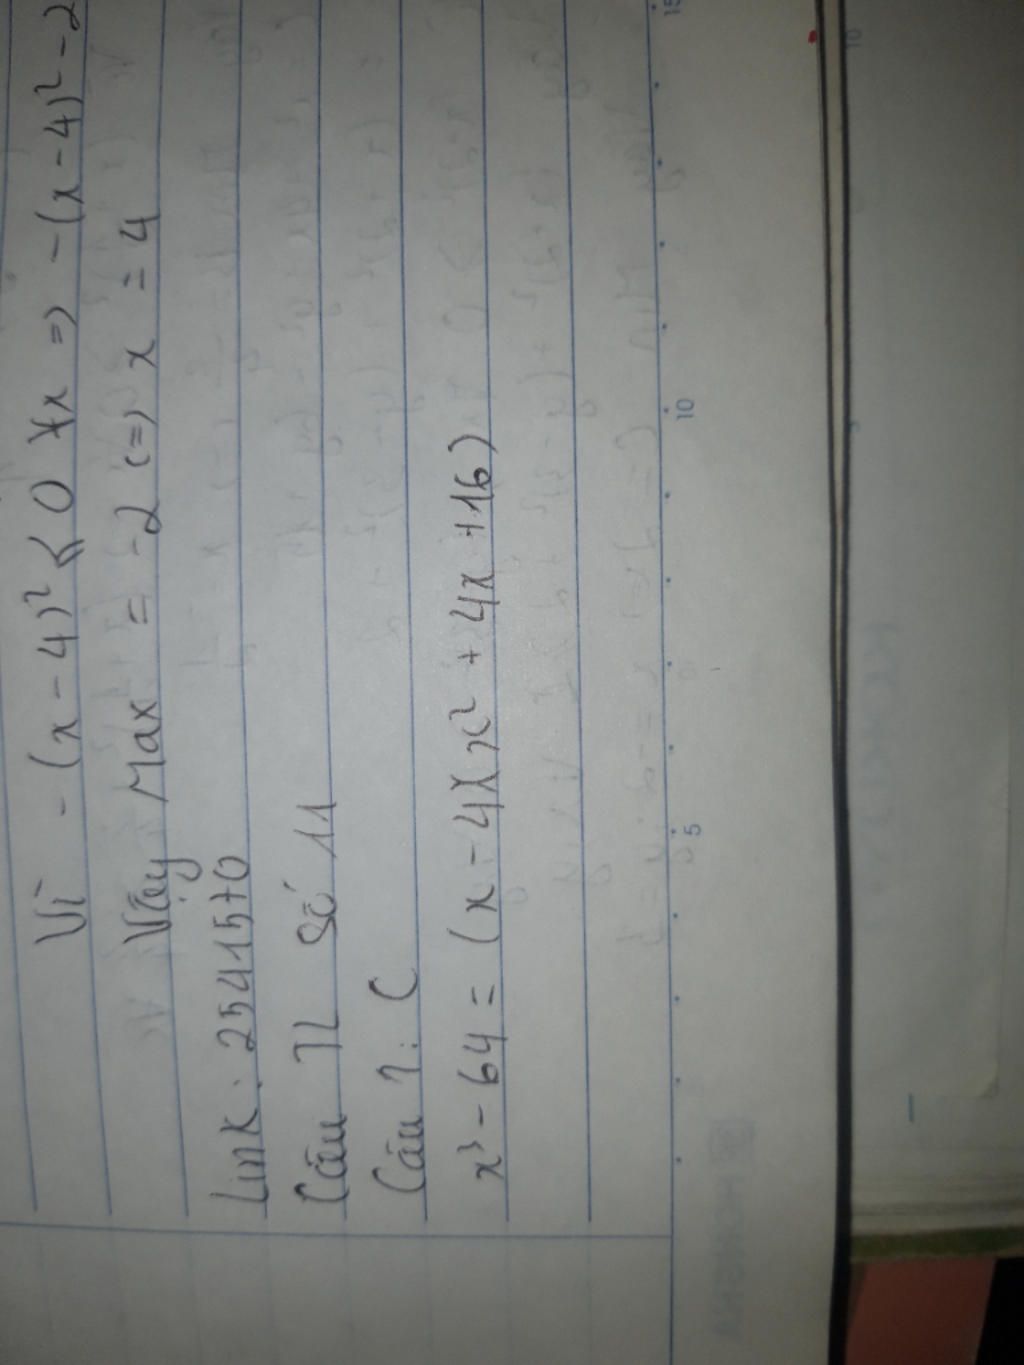 Vì -(x-4)² ⩽ 0 ∀x => -(x-4)² - 2
Vậy Max = -2 <=> x = 4
Link: 2541570
Câu TL Số 11
Câu 7: C
x³ - 64 = (x - 4)(x² + 4x + 16)
5
10
15
10